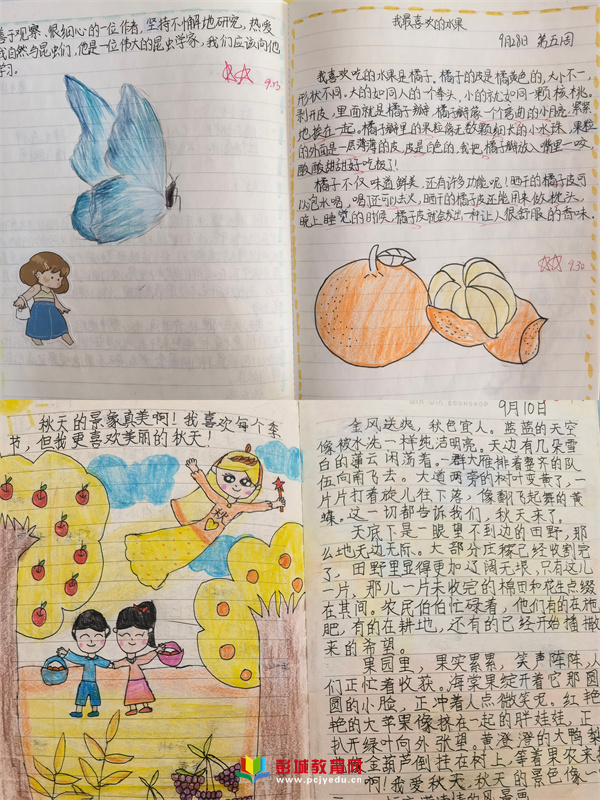 善于观察、很细心的一位作者,坚持不懈地研究,热爱
大自然与昆虫们,他是一位伟大的昆虫学家,我们应该向他
学习。
9.23
我最喜欢的水果
9月28日 第五周
我喜欢吃的水果是橘子,橘子的皮是橘黄色的,大小不一,
形状不同。大的如同人的一个拳头,小的就如同一颗核桃。
剥开皮,里面就是橘子瓣,橘子瓣像一个个弯曲的小月亮,紧紧
地挨在一起。橘子瓣里的果粒像无数颗细长的小水珠,果粒
的外面是一层薄薄的皮,皮是白色的,我把橘子瓣放入嘴里一咬
酸酸甜甜好吃极了!
橘子不仅味道鲜美,还有许多功能呢!晒干的橘子皮可
以泡水喝,喝了还可以去火,晒干的橘子皮还能用来做枕头,
晚上睡觉的时候,橘子皮就会发出一种让人很舒服的香味。
9.30
秋天的景象真美啊!我喜欢每个季
节,但我更喜欢美丽的秋天!
9月10日
金风送爽,秋色宜人。蓝蓝的天空
像被水洗一样纯洁明亮。天边有几朵雪
白的薄云闲荡着。一群大雁排着整齐的队
伍向南飞去。大道两旁的树叶变黄了,一
片片打着旋儿往下落,像翻飞起舞的黄
蝶。这一切都告诉我们,秋天来了。
天底下是一眼望不到边的田野,那
么地无边无际。大部分庄稼已经收割完
了,田野里显得更加辽阔无垠,只有这儿
一片,那儿一片未收完的棉田和花生点缀
在其间。农民伯伯忙碌着,他们有的在施
肥,有的在耕地,还有的已经开始播撒
来的希望。
果园里,果实累累,笑声阵阵,人
们正忙着收获。海棠果绽开着它那圆
圆的小脸,正冲着人点微笑呢。红艳
艳的大苹果像挤在一起的胖娃娃,正
扒开绿叶向外张望。黄澄澄的大鸭梨
金葫芦倒挂在树上,等着果农来
啊!我爱秋天,秋天的景色像一
彭城教育网
www.pcjyedu.cn